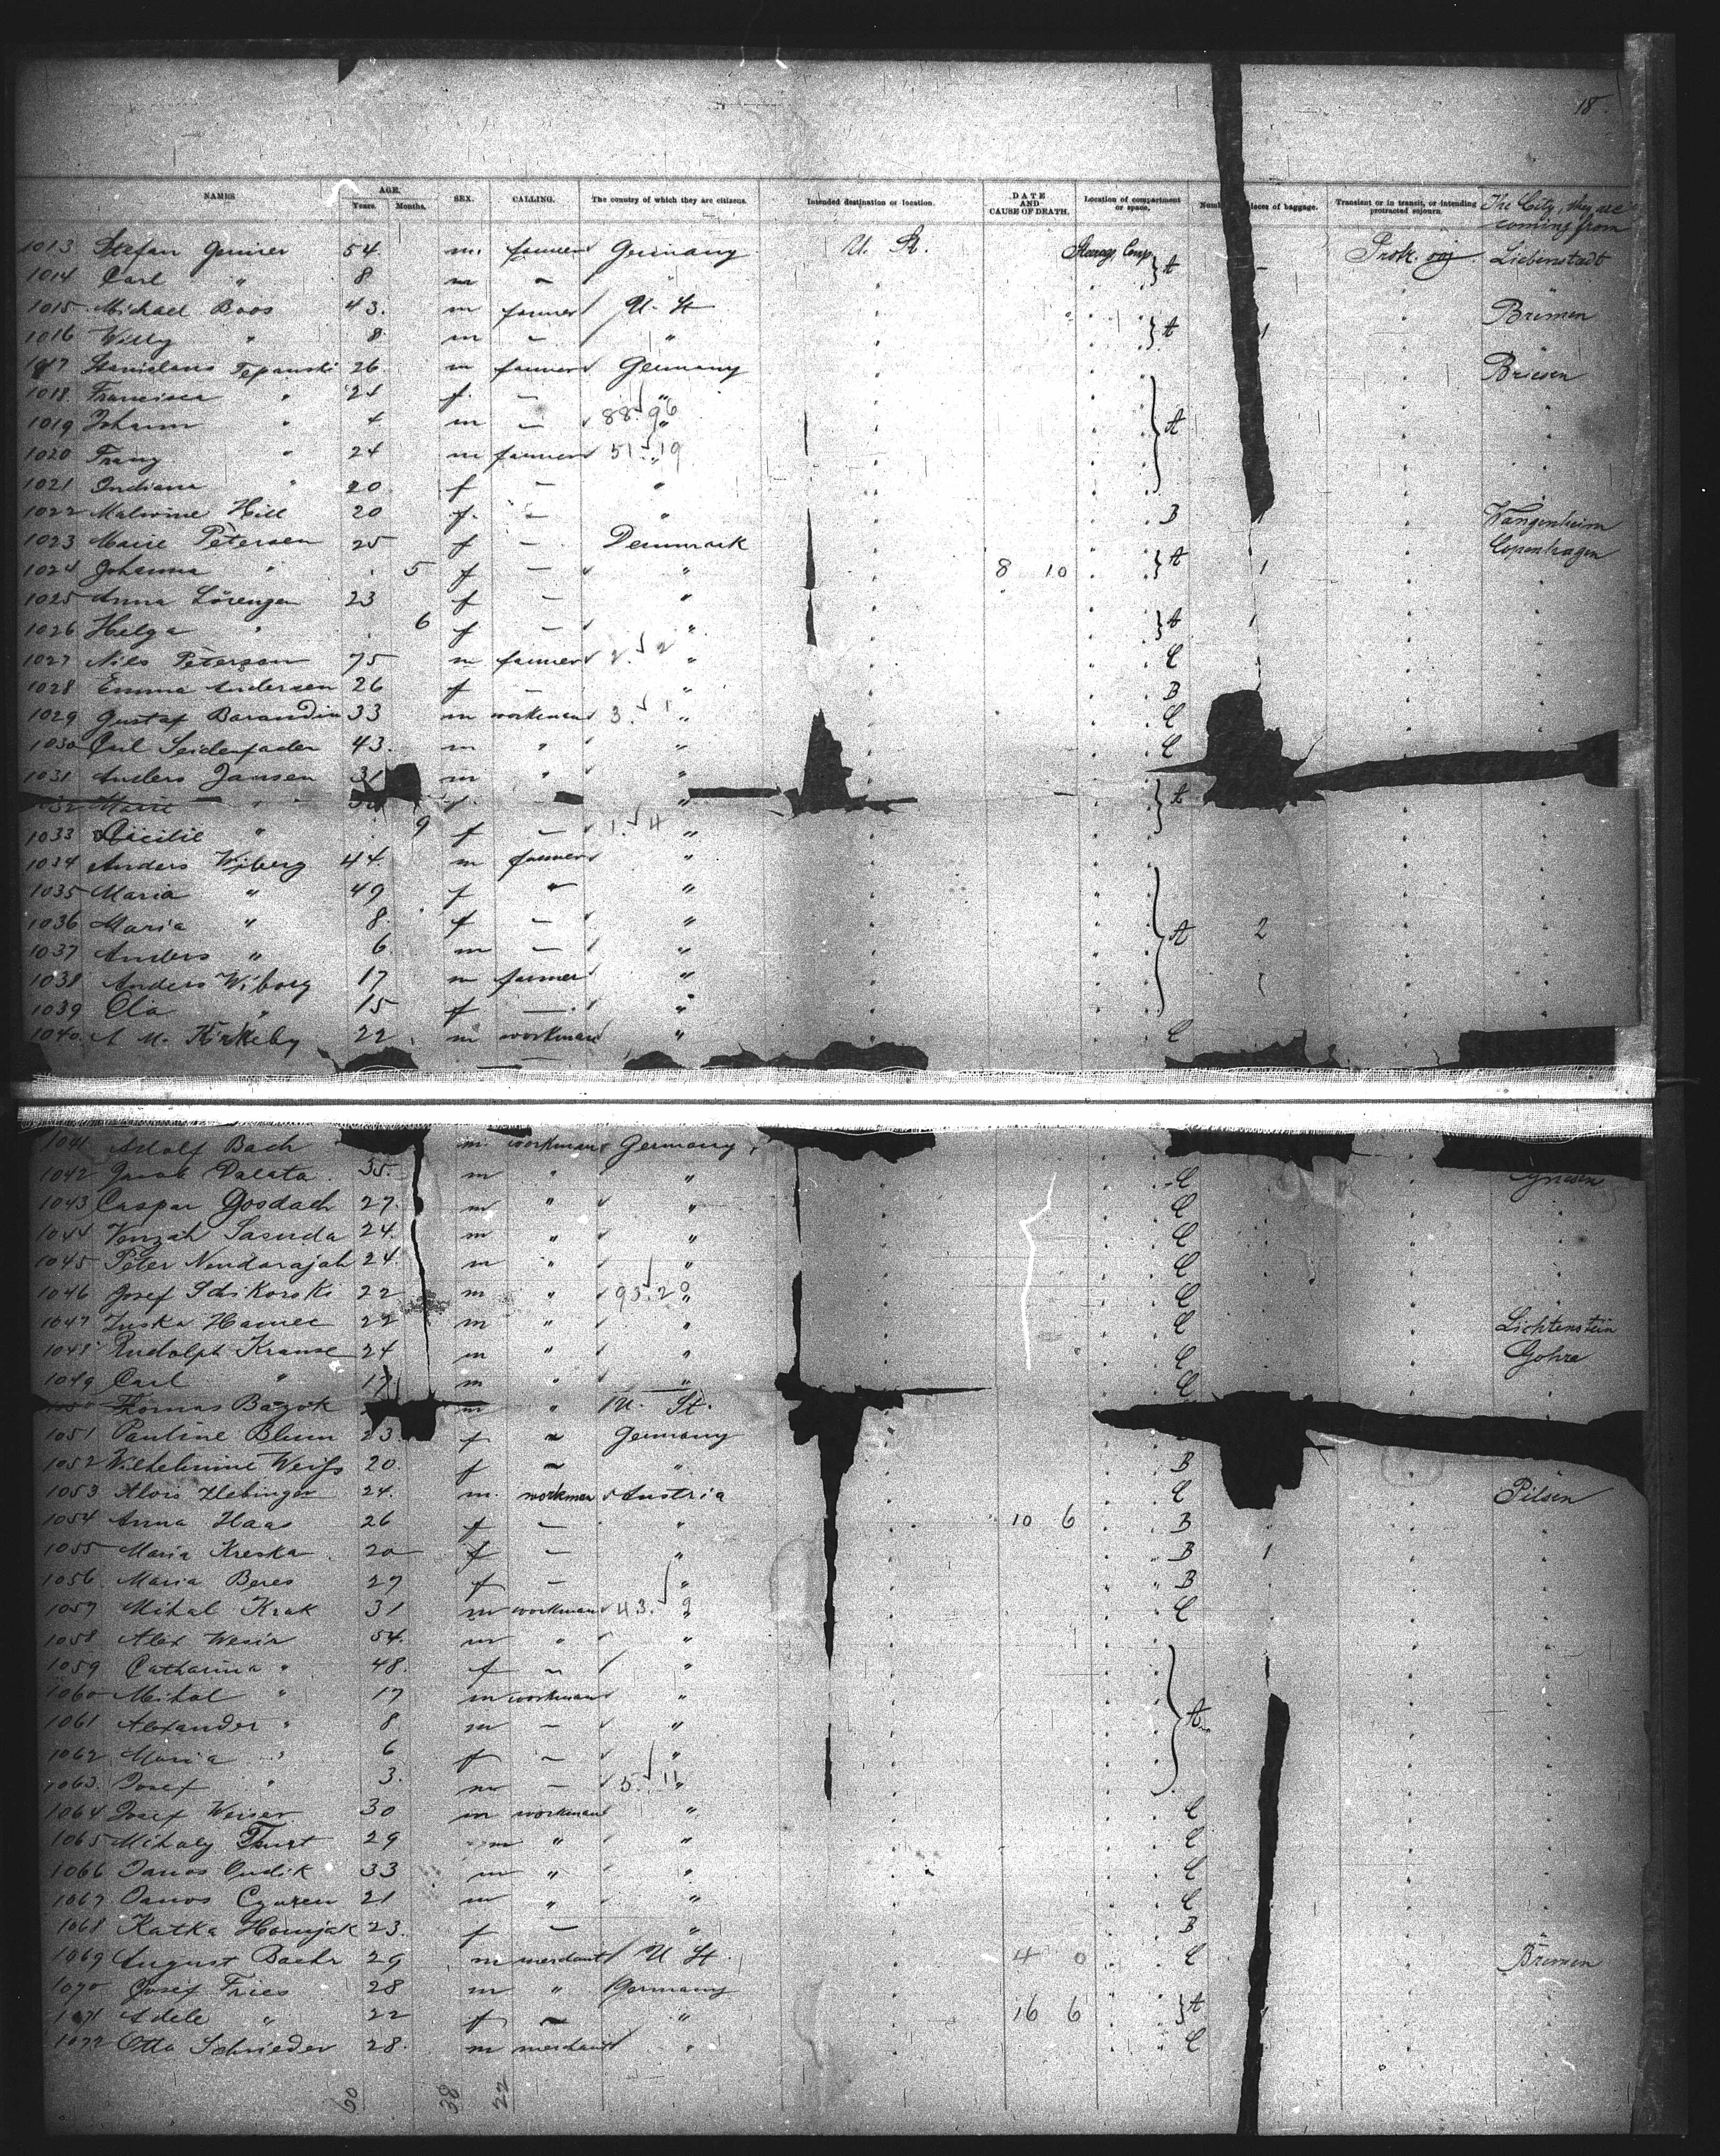 18
NAMES AGE. Years. Months. SEX. CALLING. The country of which they are citizens. Intended destination or location. DATE AND CAUSE OF DEATH. Location of compartment or space. pieces of baggage. Transient or in transit, or intending protracted sojourn. The City, they are coming from
1013 Stefan 54. m. farmer Germany U. St. Steerag. Comp. A Liebenstadt
1014 Carl " 8 m - "
1015 Michael Boos 43. m farmer U. St Bremen
1016 Willy " 8 m - " A 1
1017 Stanislaus Tepanski 26 m farmer Germany Briesen
1018 Francisca " 21 f. - "
1019 Johann " 4 m - 88. 96 " A
1020 Franz " 24 m farmer 51. 19 "
1021 Indiana " 20 f - "
1022 Malwine Hill 20 f. - " B Wangenheim
1023 Marie Petersen 25 f - Denmark Copenhagen
1024 Johanna " 5 f - " 8 10 A 1
1025 Anna Lörenzen 23 f - "
1026 Helga " 6 f - " A 1
1027 Nils Petersen 75 m farmer 2. 2 " C
1028 Emma Andersen 26 f - " B
1029 Gustaf Barandin 33 m workman 3. 1 " C
1030 Carl Seidenfader 43. m " " C
1031 Anders Jansen 31 m " "
1032 Marie " f. " A
1033 Cäcilie " 9 f - 1. 4 "
1034 Anders Wiberg 44. m farmer "
1035 Maria " 49 f " "
1036 Maria " 8. f - "
1037 Anders " 6. m - " A 2
1038 Anders Wiborg 17 m farmer "
1039 Ola " 15 f - "
1040 A M. Kirkeby 22 m workman " C
1041 Adolf Bach m. workman Germany
1042 Jacob Dalata 35. m " " C
1043 Caspar Gosdach 27. m " " C
1044 Venzah Sasuda 24. m " " C
1045 Peter Nendarajah 24. m " " C
1046 Josef Sdikorski 22 m " 95. 29 " C
1047 22 m " " C Lichtenstein
1048 Rudolph Krause 24 m " " C Gohra
1049 Carl " 17 m " " C
Thomas Bazok m " U. St.
1051 Pauline Blum 23. f " Germany
1052 Wilhelmine Weifs 20. f - " B
1053 Alois Hebinger 24. m. workman Austria C Pilsen
1054 Anna Haas 26 f - " 10 6 B
1055 Maria Kreska 20 f - " B 1
1056 Maria Beres 27 f - " B
1057 Mihal Krak 31 m workman 43. 9 " C
1058 Alex Wesir 54. m " "
1059 Catharina " 48. f - "
1060 Mihal " 17 m workman "
1061 Alexander " 8 m - " A
1062 Maria " 6 f - "
1063. Josef " 3. m - 5. 11 "
1064 Josef Weiser 30 m workman " C
1065 Mihaly 29 m " " C
1066 Janos Ondik 33 m " " C
1067 Janos 21 m " " C
1068 Katka Homjak 23. f - " B
1069 August Baehr 29 m merchant U St. 4 0 C Bremen
1070 Josef Fries 28 m " Germany
1071 Adele " 22 f - " 16 6 A
1072 Otto Schrieder 28. m merchant " C
60 38 22